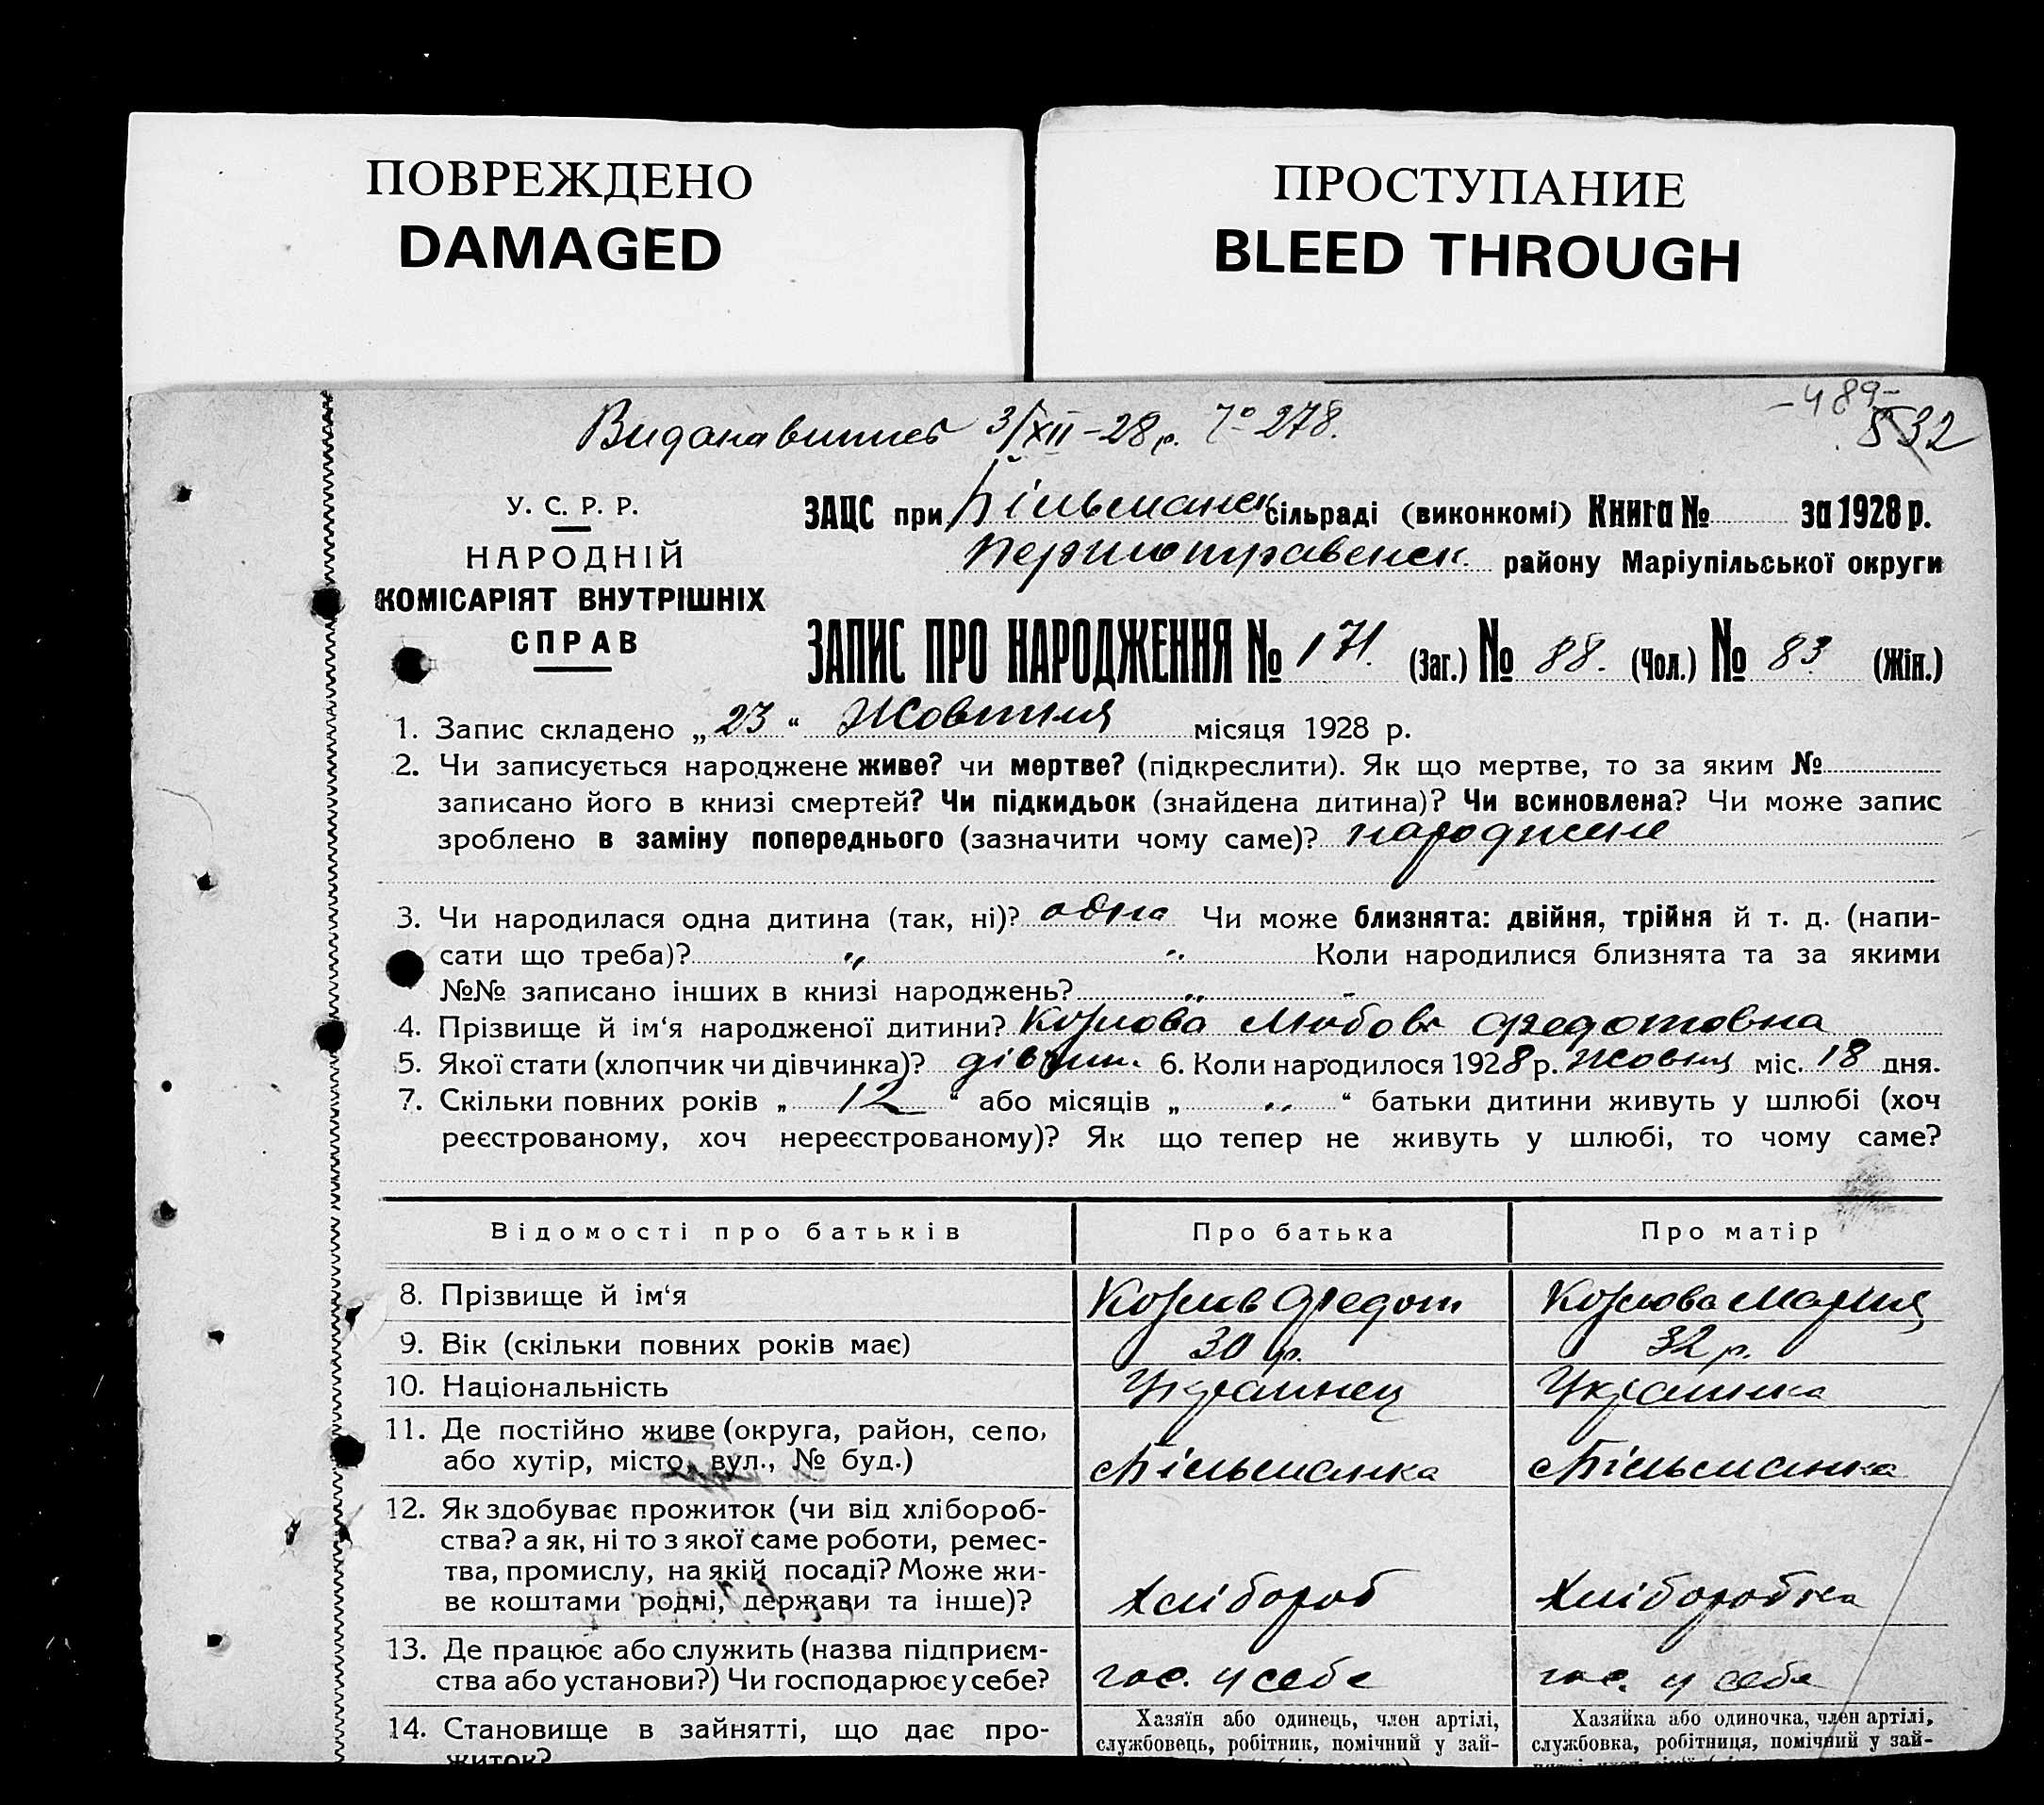 ПОВРЕЖДЕНО
DAMAGED
ПРОСТУПАНИЕ
BLEED THROUGH
-489-
532
Видана випись 3/XII-28 р. № 278.
У. С. Р. Р.
НАРОДНІЙ
КОМІСАРІЯТ ВНУТРІШНІХ
СПРАВ
ЗАЦС при Більманск сільраді (виконкомі) Книга № за 1928 р.
Першотравенск. району Маріупільської округи
ЗАПИС ПРО НАРОДЖЕННЯ № 171. (Заг.) № 88. (Чол.) № 83 (Жін.)
1. Запис складено „ 23 “ Жовтня місяця 1928 р.
2. Чи записується народжене живе? чи мертве? (підкреслити). Як що мертве, то за яким №
записано його в книзі смертей? Чи підкидьок (знайдена дитина)? Чи всиновлена? Чи може запис
зроблено в заміну попереднього (зазначити чому саме)? народжене
3. Чи народилася одна дитина (так, ні)? одна Чи може близнята: двійня, трійня й т. д. (напи-
сати що треба)? „ „ Коли народилися близнята та за якими
№№ записано інших в книзі народжень? „ -
4. Прізвище й ім‘я народженої дитини? Любовь Федотовна
5. Якої стати (хлопчик чи дівчинка)? дівчин. 6. Коли народилося 1928 р. жовтня міс. 18 дня.
7. Скільки повних років „ 12 “ або місяців „ „ “ батьки дитини живуть у шлюбі (хоч
реєстрованому, хоч нереєстрованому)? Як що тепер не живуть у шлюбі, то чому саме?
Відомості про батьків
Про батька
Про матір
8. Прізвище й ім‘я
Федот
Мария
9. Вік (скільки повних років має)
30 р.
32 р.
10. Національність
Украинец
Украинка
11. Де постійно живе (округа, район, село,
або хутір, місто, вул., № буд.)
Більманка
Більманка
12. Як здобуває прожиток (чи від хлібороб-
ства? а як, ні то з якої саме роботи, ремес-
тва, промислу, на якій посаді? Може жи-
ве коштами родні, держави та інше)?
Хлібороб
Хліборобка
13. Де працює або служить (назва підприєм-
ства або установи?) Чи господарює у себе?
гос. у себе
гос. у себе
14. Становище в зайнятті, що дає про-
житок?
Хазяїн або одинець, член артілі,
службовець, робітник, помічний у зай-
Хазяйка або одиночка, член артілі,
службовка, робітниця, помічний у зай-